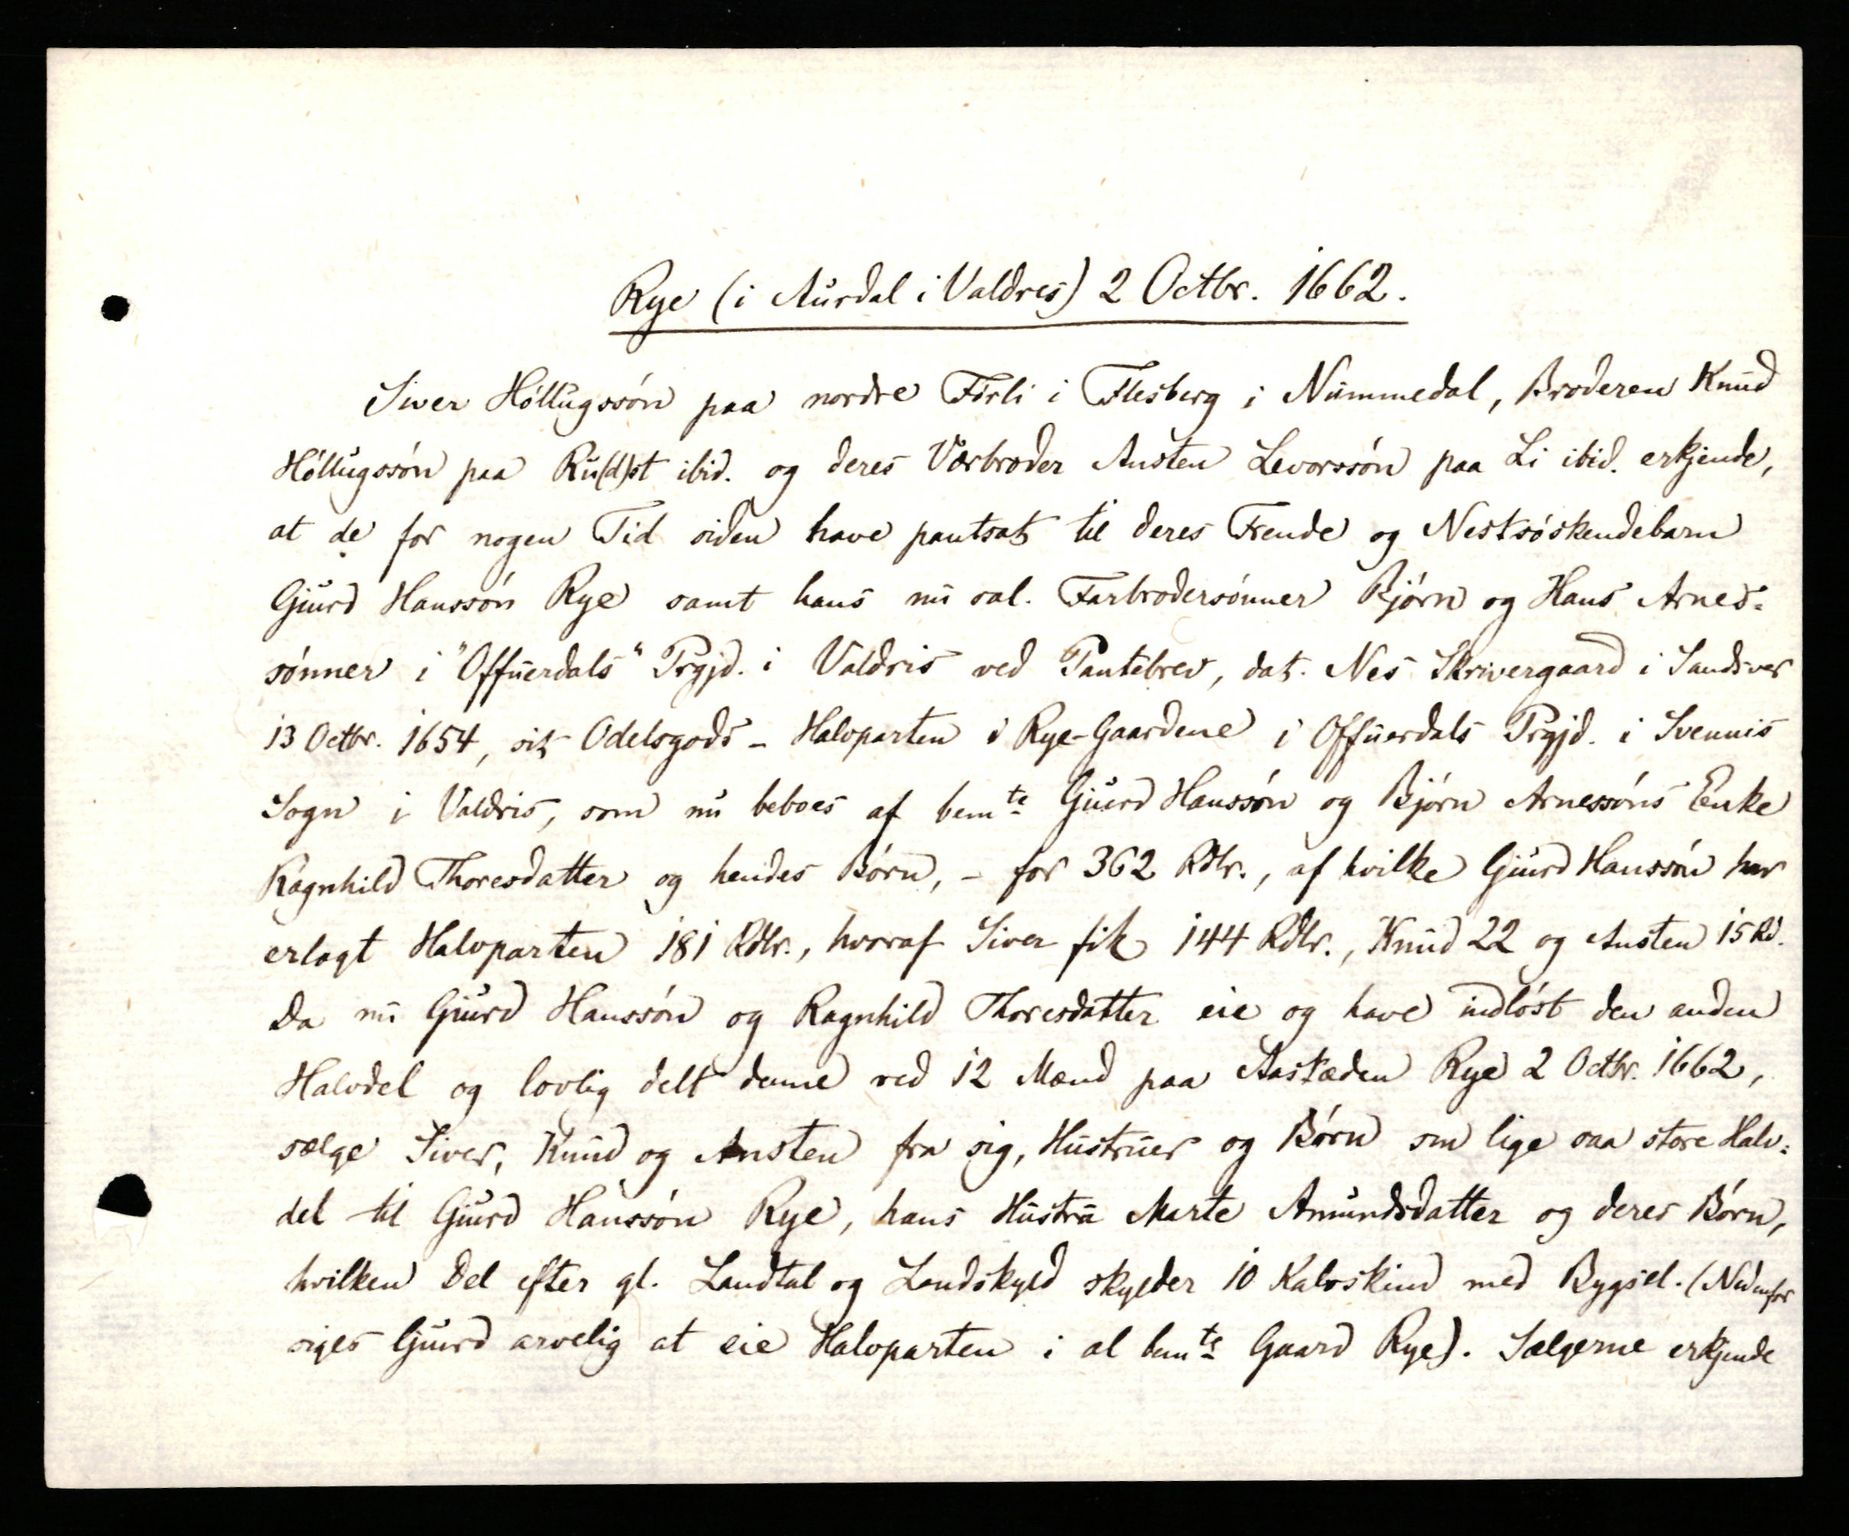 Rye (i Aurdal i Valdres) 2 Octbr. 1662.
Siver Höllugssön paa nordre Förli i Flesberg i Nummedal, Broderen Knud
Höllugssön paa Ru(d)st ibid. og deres Værbroder Austen Levorssön paa Li ibid. erkjende,
at de for nogen Tid siden have pantsat til deres Frende og Nestsöskendebarn
Gjurd Hanssön Rye samt hans nu sal. Farbrodersönner Björn og Hans Arnes-
sönner i "Offuerdals" Prgjd. i Valdris ved Pantebrev, dat. Nes Skrivergaard i Sandsver
13 Octbr. 1654, sit Odelsgods - Halvparten i Rye-Gaardene i Offuerdals Prgjd. i Svennis
Sogn i Valdris, som nu beboes af bemte Gjurd Hanssön og Björn Arnessöns Enke
Ragnhild Thoresdatter og hendes Börn, - for 362 Rdlr., af hvilke Gjurd Hanssön har
erlagt Halvparten 181 Rdlr., hvoraf Siver fik 144 Rdlr., Knud 22 og Austen 15 Rd.
Da nu Gjurd Hanssön og Ragnhild Thoresdatter eie og have indlöst den anden
Halvdel og lovlig delt denne ved 12 Mænd paa Aastæden Rye 2 Octbr. 1662,
sælge Siver, Knud og Austen fra sig, Hustruer og Börn sin lige saa store Halv-
del til Gjurd Hanssön Rye, hans Hustru Marte Amundsdatter og deres Börn,
hvilken Del efter gl. Landtal og Landskyld skylder 10 Kalvskind med Bygsel. (Nedenfor
siges Gjurd arvelig at eie Halvparten i al bemte Gaard Rye). Sælgerne erkjende